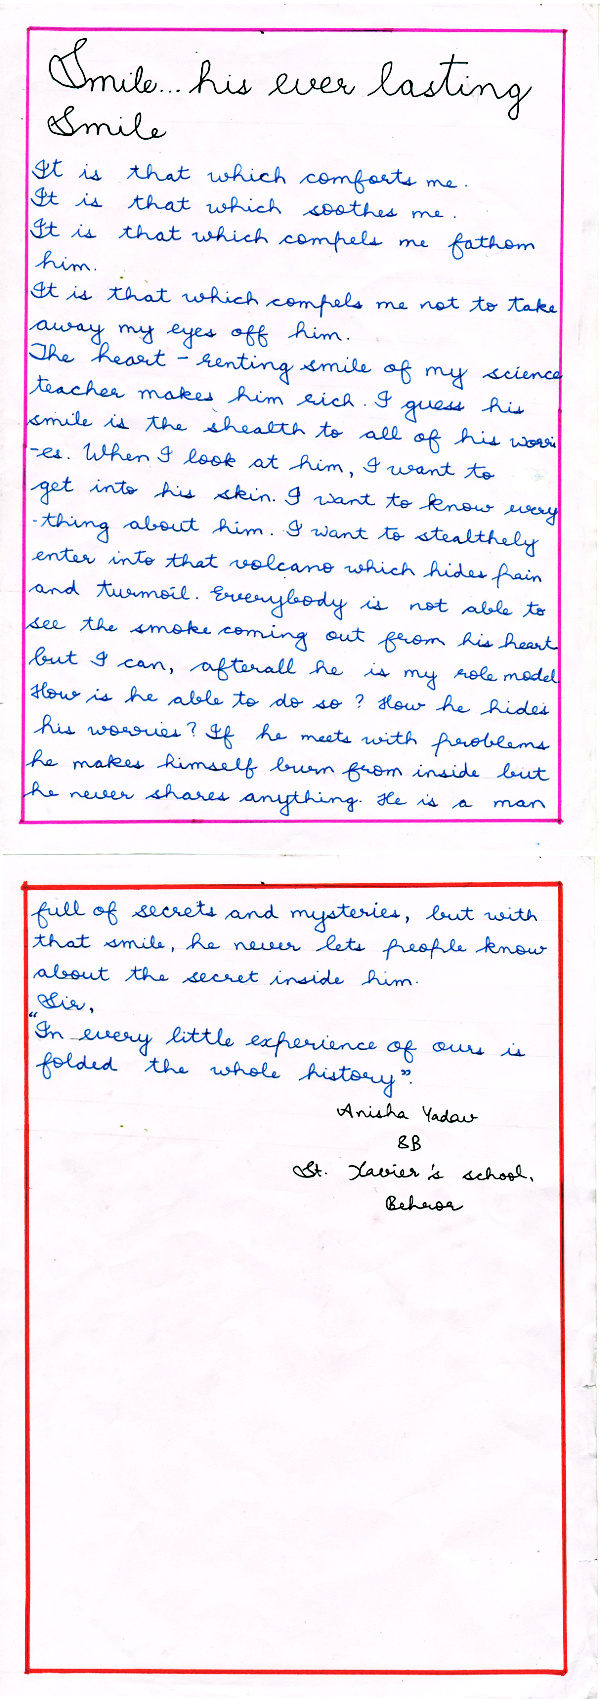 Smile... his ever lasting
Smile
It is that which comforts me.
It is that which soothes me.
It is that which compels me fathom
him.
It is that which compels me not to take
away my eyes off him.
The heart - renting smile of my science
teacher makes him rich. I guess his
smile is the shealth to all of his worri
-es. When I look at him, I want to
get into his skin. I want to know every
-thing about him. I want to stealthely
enter into that volcano which hides pain
and turmoil. Everybody is not able to
see the smoke coming out from his heart
but I can, afterall he is my role model
How is he able to do so? How he hides
his worries? If he meets with problems
he makes himself burn from inside but
he never shares anything. He is a man
full of secrets and mysteries, but with
that smile, he never lets people know
about the secret inside him.
Sir,
"In every little experience of ours is
folded the whole history".
Anisha Yadav
8B
St. Xavier's school,
Behror